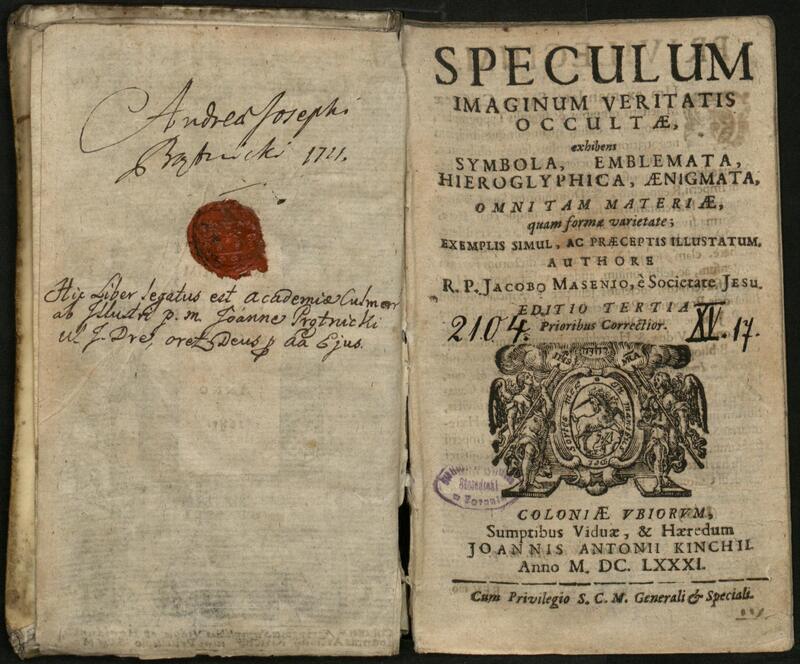 Andreæ Josephi
1711.
Hic Liber legatus est Academiæ Culmen
ab Illustri p. m. Joanne
U. J. Dre, oret Deus p aa Ejus.
SPECULUM
IMAGINUM VERITATIS
OCCULTÆ,
exhibens
SYMBOLA, EMBLEMATA,
HIEROGLYPHICA, ÆNIGMATA,
OMNI TAM MATERIÆ,
quam formæ varietate;
EXEMPLIS SIMUL, AC PRÆCEPTIS ILLUSTATUM.
AUTHORE
R. P. JACOBO MASENIO, è Societate JESU.
EDITIO TERTIA
Prioribus Correctior.
2104. XV. 17.
COLONIÆ VBIORVM,
Sumptibus Viduæ, & Hæredum
JOANNIS ANTONII KINCHII.
Anno M. DC. LXXXI.
Cum Privilegio S. C. M. Generali & Speciali.